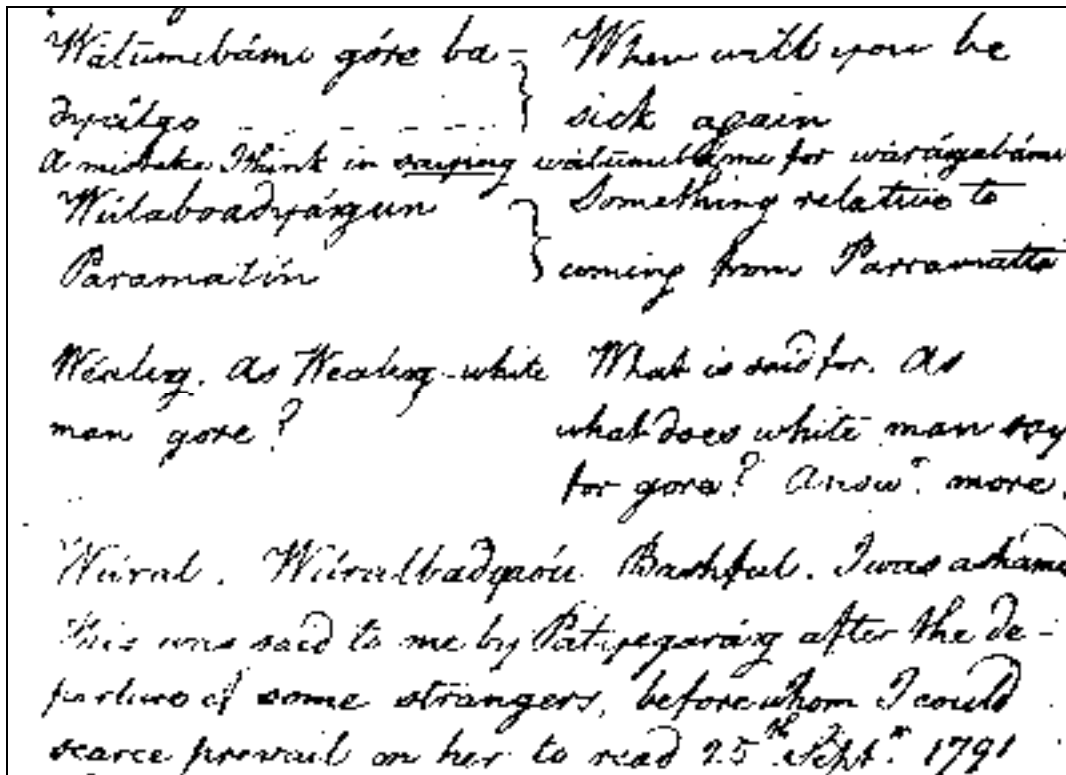 Wátūmibámi góre ba- } When will you be
dyálgo } sick again
A mistake I think in saying wátūmibámi for wåráŋabámi
Wúlaboadyáŋun } Something relative to
Paramatín } coming from Parramatta
Wéaliŋ. As Wealiŋ white What is said for. As
man gore? what does white man say
for gore? Answr. more.
Wúral. Wúralbadyaóu Bashful. I was ashamed
This was said to me by Patyegaráŋ after the de-
parture of some strangers, before whom I could
scarce prevail on her to read 25th. Septr. 1791